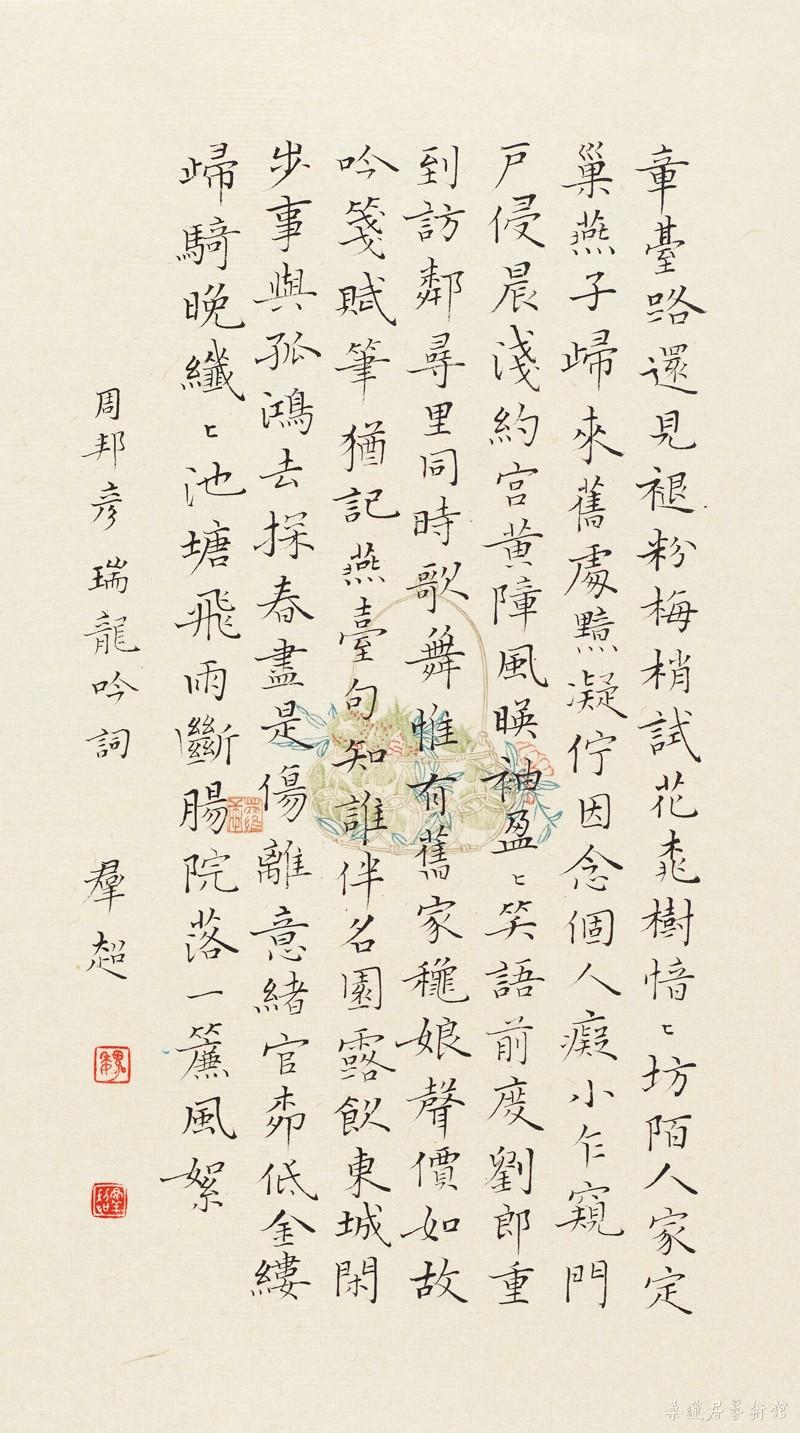 章臺路還見褪粉梅梢試花桃樹愔〻坊陌人家定
巢燕子歸來舊處黯凝佇因念個人癡小乍窺門
戶侵晨淺約宮黃障風暎袖盈〻笑語前度劉郎重
到訪鄰尋里同時歌舞惟有舊家秋娘聲價如故
吟箋賦筆猶記燕臺句知誰伴名園露飲東城閑
步事與孤鴻去探春盡是傷離意緒官柳低金縷
歸騎晚纖〻池塘飛雨斷腸院落一簾風絮
周邦彥瑞龍吟詞 羣超